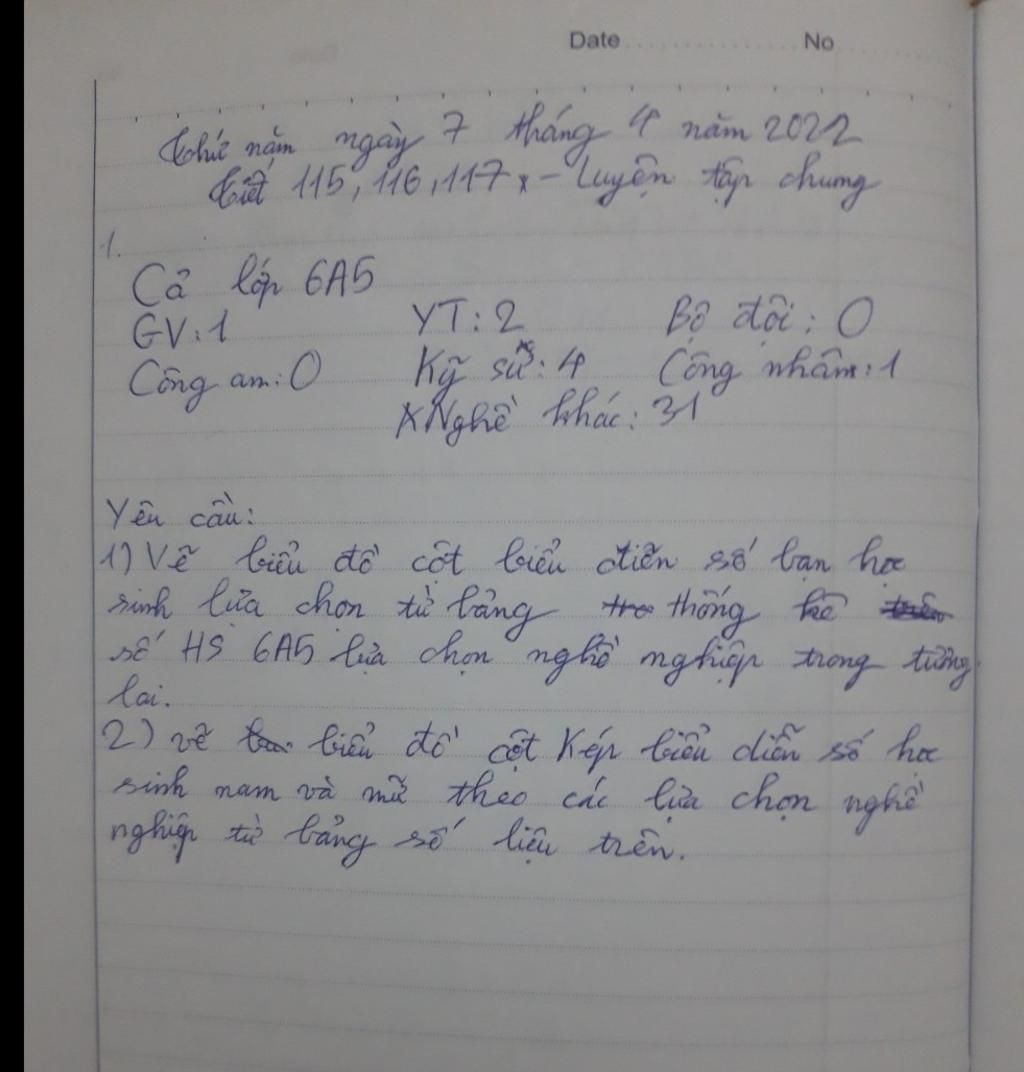 Date No
Thứ năm ngày 7 tháng 4 năm 2022
Tiết 115, 116, 117 - Luyện tập chung
1.
Cả lớp 6A5
GV: 1 YT: 2 Bộ đội: 0
Công an: 0 Kỹ sư: 4 Công nhân: 1
Nghề khác: 31
Yêu cầu:
1) Vẽ biểu đồ cột biểu diễn số bạn học
sinh lựa chọn từ bảng thống kê
số HS 6A5 lựa chọn nghề nghiệp trong tương
lai.
2) vẽ biểu đồ cột Kép biểu diễn số học
sinh nam và nữ theo các lựa chọn nghề
nghiệp từ bảng số liệu trên.